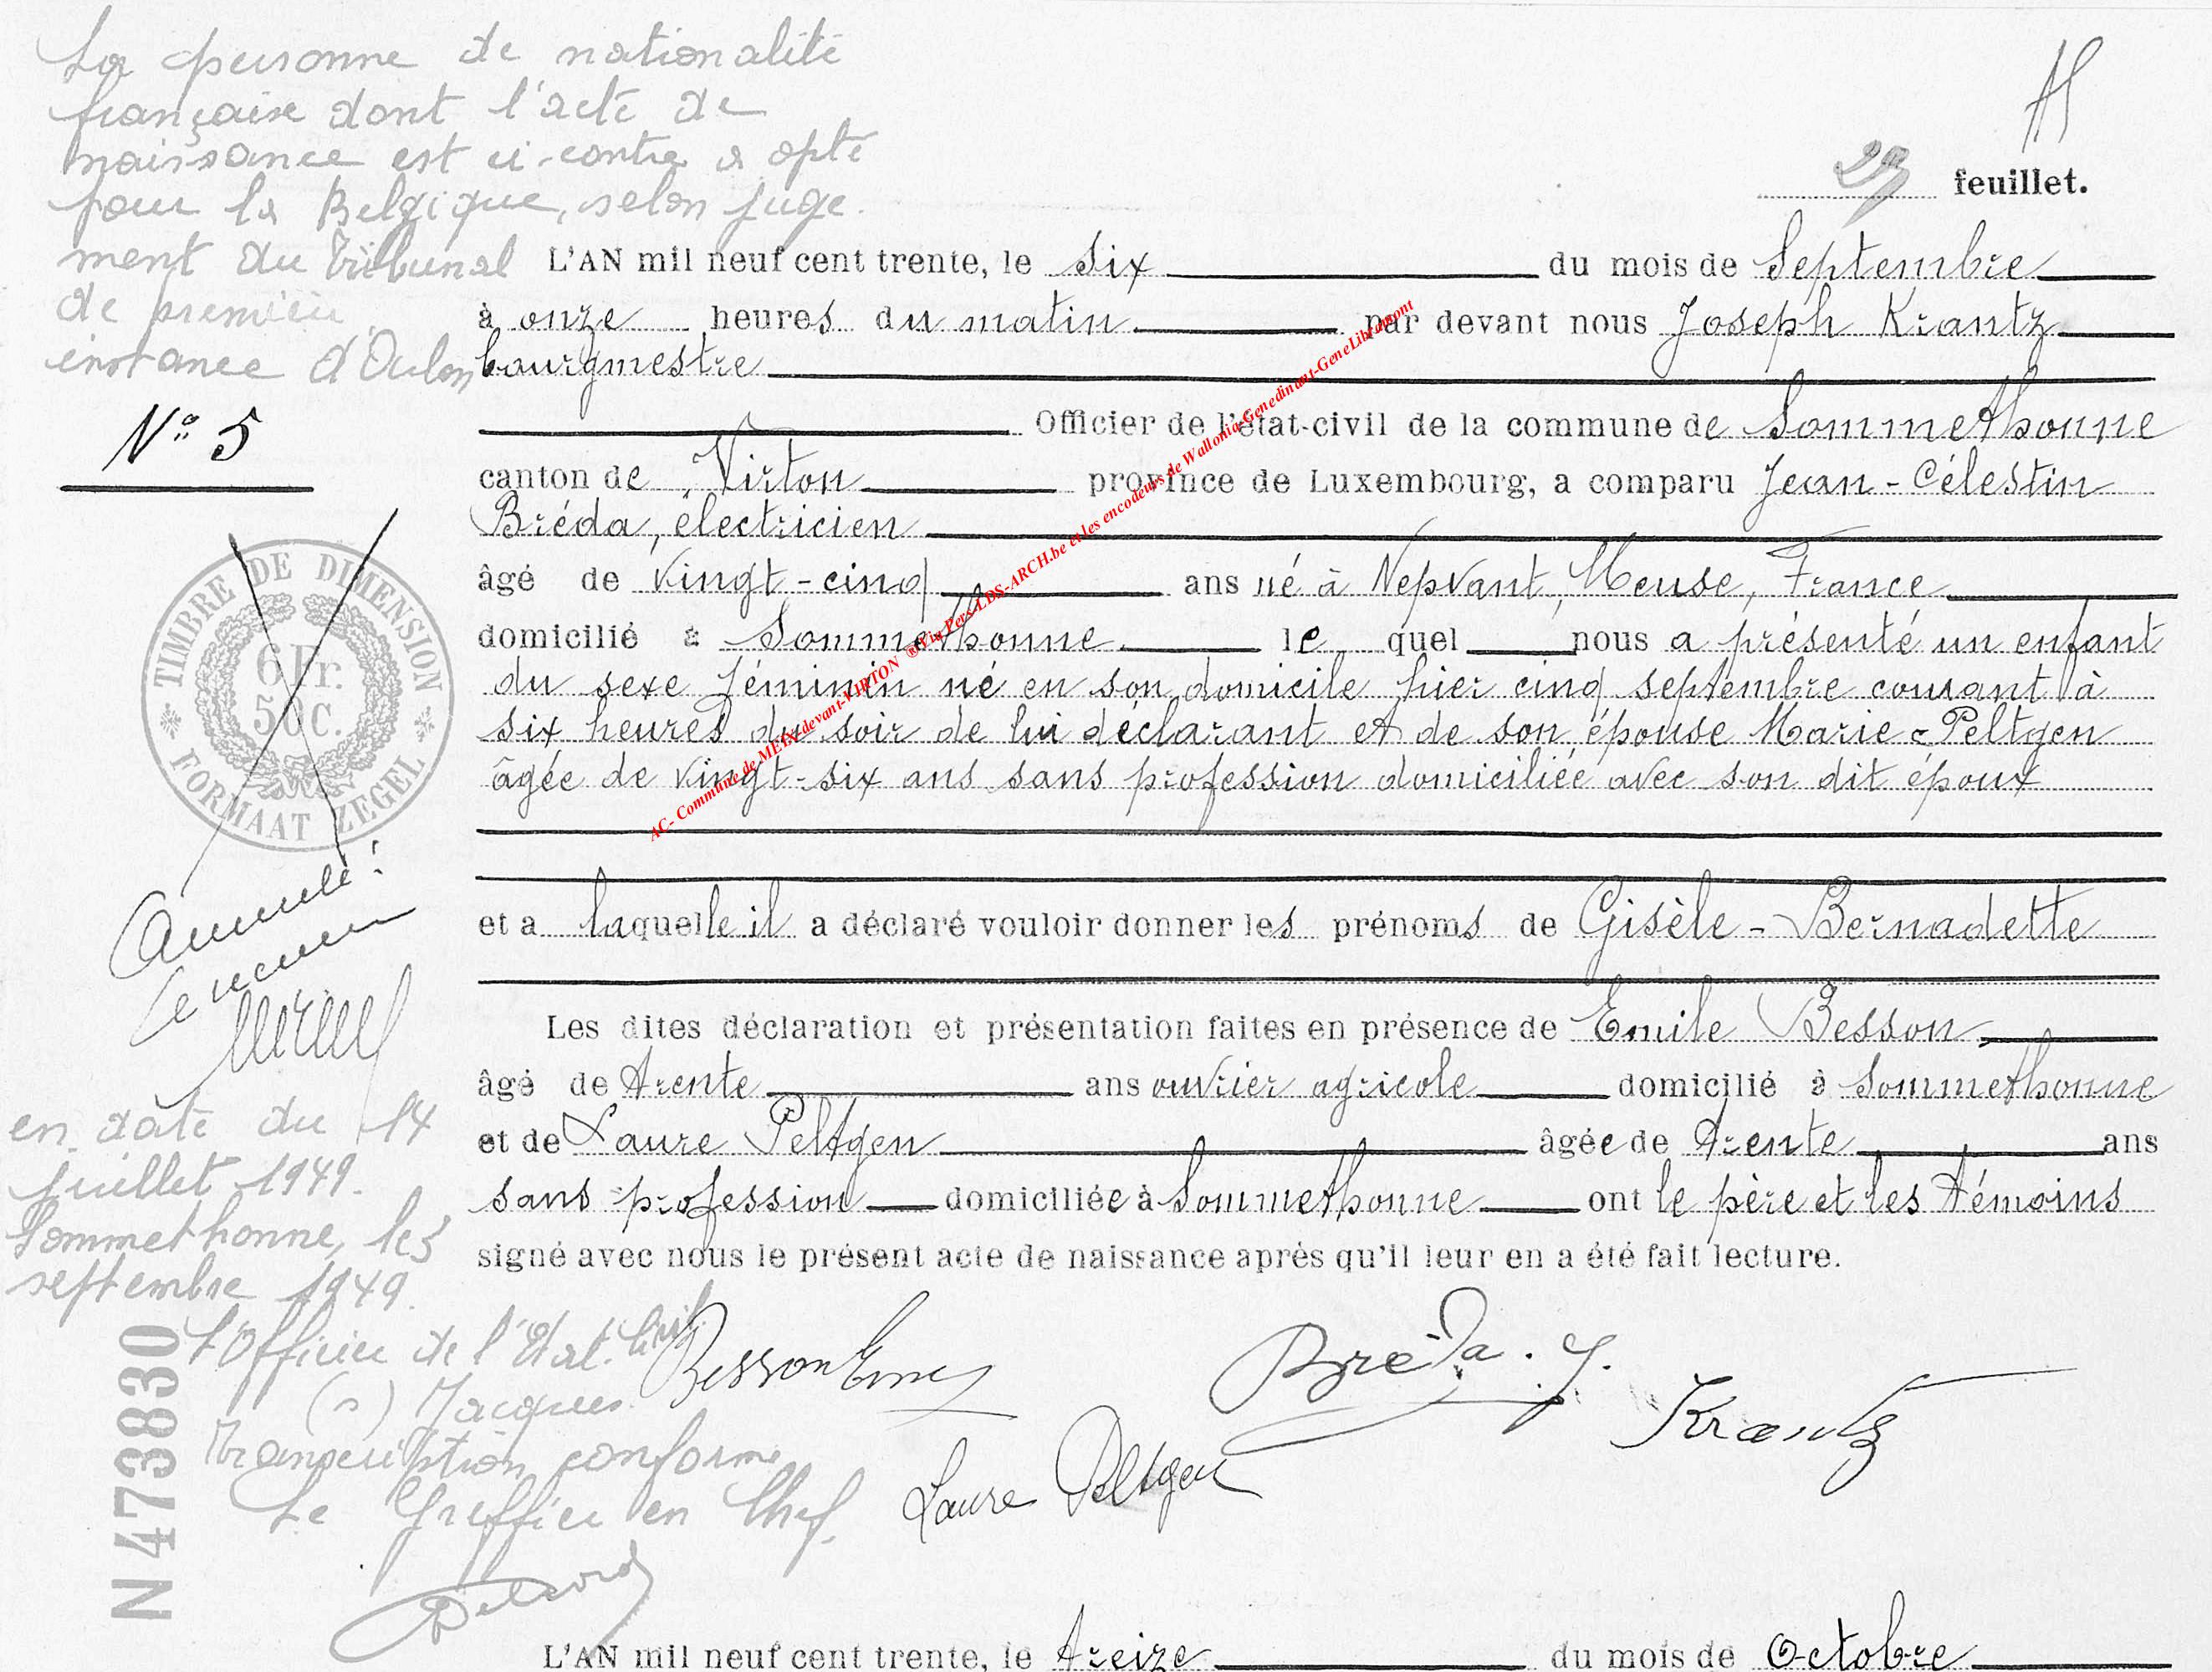 La personne de nationalité
française dont l'acte de
naissance est ci-contre a opté
pour la Belgique, selon juge-
ment du Tribunal
de première
instance d'Arlon
N° 5
TIMBRE DE DIMENSION
6 Fr.
50 C.
FORMAAT ZEGEL
Annulé:
Le receveur
en date du 14
juillet 1949.
Sommethonne, le 5
septembre 1949.
L'Officier de l'Etat-Civil
(s) Jacques
Transcription conforme
Le Greffier en Chef.
N 473830
feuillet.
L'AN mil neuf cent trente, le six du mois de Septembre
à onze heures du matin par devant nous Joseph Krantz
bourgmestre
Officier de l'état-civil de la commune de Sommethonne
canton de Virton province de Luxembourg, a comparu Jean-Célestin
Bréda, électricien
âgé de vingt-cinq ans né à Nepvant, Meuse, France
domicilié à Sommethonne lequel nous a présenté un enfant
du sexe féminin né en son domicile hier cinq septembre courant à
six heures du soir de lui déclarant et de son épouse Marie Peltgen
âgée de vingt-six ans sans profession domiciliée avec son dit époux
et a laquelle il a déclaré vouloir donner les prénoms de Gisèle-Bernadette
Les dites déclaration et présentation faites en présence de Emile Besson
âgé de trente ans ouvrier agricole domicilié à Sommethonne
et de Laure Peltgen âgée de trente ans
sans profession domiciliée à Sommethonne ont le père et les témoins
signé avec nous le présent acte de naissance après qu'il leur en a été fait lecture.
Besson Emile
Bréda. J.
Krantz
Laure Peltgen
L'AN mil neuf cent trente, le treize du mois de Octobre
AC- Commune de MEIX-devant-VIRTON ®Via Pers-LDS-ARCH.be et les encodeurs de Wallonia-Genedinant-GeneLibramont